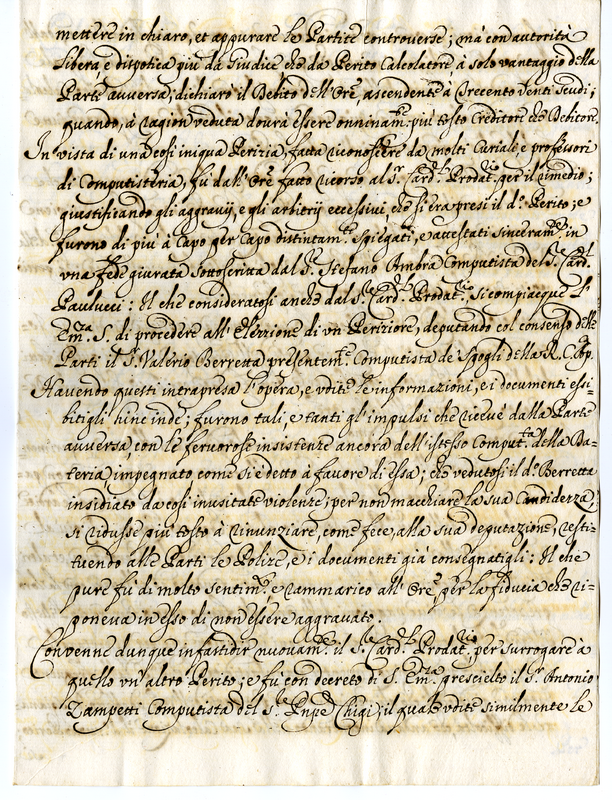 mettere in chiaro, et appurare le Partite controverse; mà con autorità
libera, e dispotica più da Giudice che da Perito Calcolatore à solo vantaggio della
Parte avversa, dichiarò il Debito dell'Ore, ascendente à Trecento venti Scudi;
quando, à ragion veduta dovrà essere onninam.te più tosto Creditore che Debitore.
In vista di una così iniqua Perizia, fatta riconoscere da molti Curiali e professori
di Computisteria, fù dall'Ore fatto ricorso al S.r Card.l Prodat.rio per il rimedio;
giustificando gli aggravij, e gli arbitrij eccessivi, che si era presi il d.o Perito; e
furono di più à Capo per Capo distintam.te spiegati, e attestati sinceram.te in
una fede giurata sottoscritta dal S.r Stefano Ambra Computista del S. Card.l
Paulucci: Il che consideratosi anche dal S.r Card.l Prodat.rio, si compiacque l'
Em.za S. di procedere all'Elezzione di un Periziore, deputando col consenso delle
Parti il S.r Valerio Berretta presentem.te Computista de Spogli della R. C. Ap.
Havendo questi intrapresa l'opera, e udite le informazioni, e i documenti esi-
bitigli hinc inde; furono tali, e tanti gl'impulsi che ricevé dalla Parte
avversa con le fervorose insistenze ancora dell'istesso Comput.ta della Da-
teria impegnato come si è detto à favore di essa; che vedutosi il d.o Berretta
insidiato da così inusitate violenze; per non macchiare la sua Candidezza,
si ridusse più tosto à rinunziare, come fece, alla sua deputazione, resti-
tuendo alle Parti le Polize, e i documenti già consegnatigli: Il che
pure fù di molto sentim.to, e rammarico all'Ore, per la fiducia che ri-
poneva in esso di non essere aggravato.
Convenne dunque infastidir nuovam.te il S.r Card.l Prodat.rio, per surrogare à
quello un'altro Perito; e fù con decreto di S. Em.za prescielto il S.r Antonio
Zampetti Computista del S.r Pnpe Chigi; il quale udite similmente le